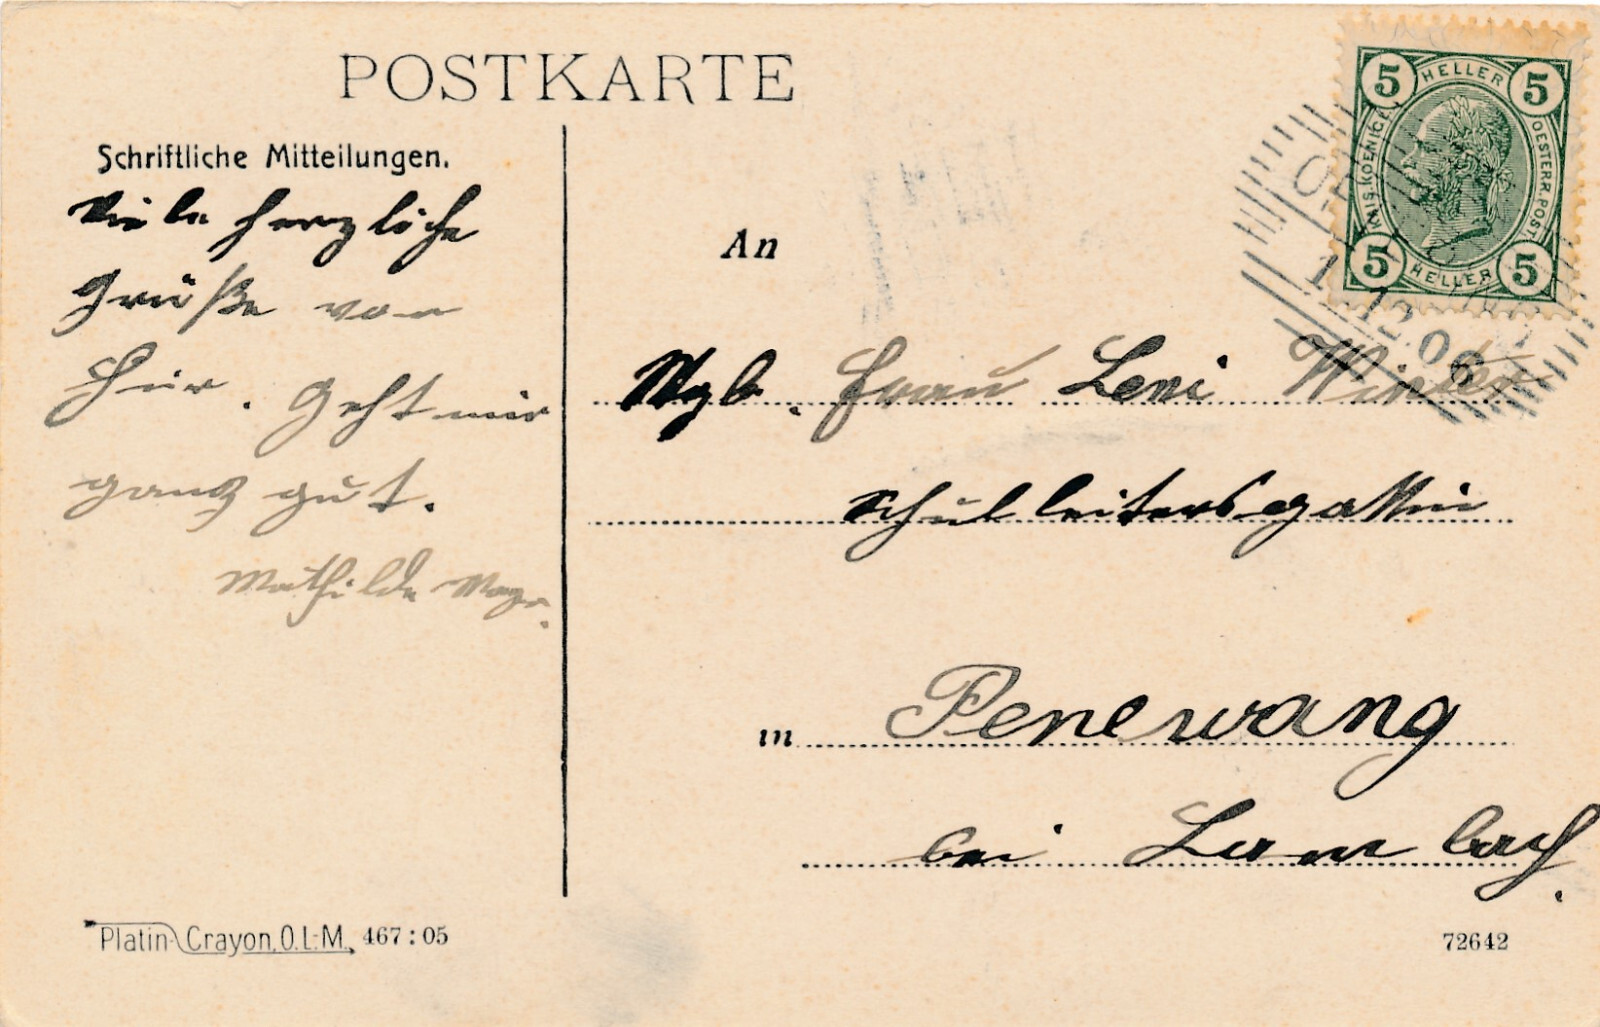 POSTKARTE
Schriftliche Mitteilungen.
Viele herzliche
Grüße von
hier. Geht mir
ganz gut.
Mathilde Mayr.
An
Wglb. Frau Leni Winter
Schulleitersgattin
in Penewang
bei Lambach.
5 HELLER 5
KAIS. KOENIGL. OESTERR. POST.
5 HELLER 5
1 12 06
Platin-Crayon, O.L-M. 467:05
72642